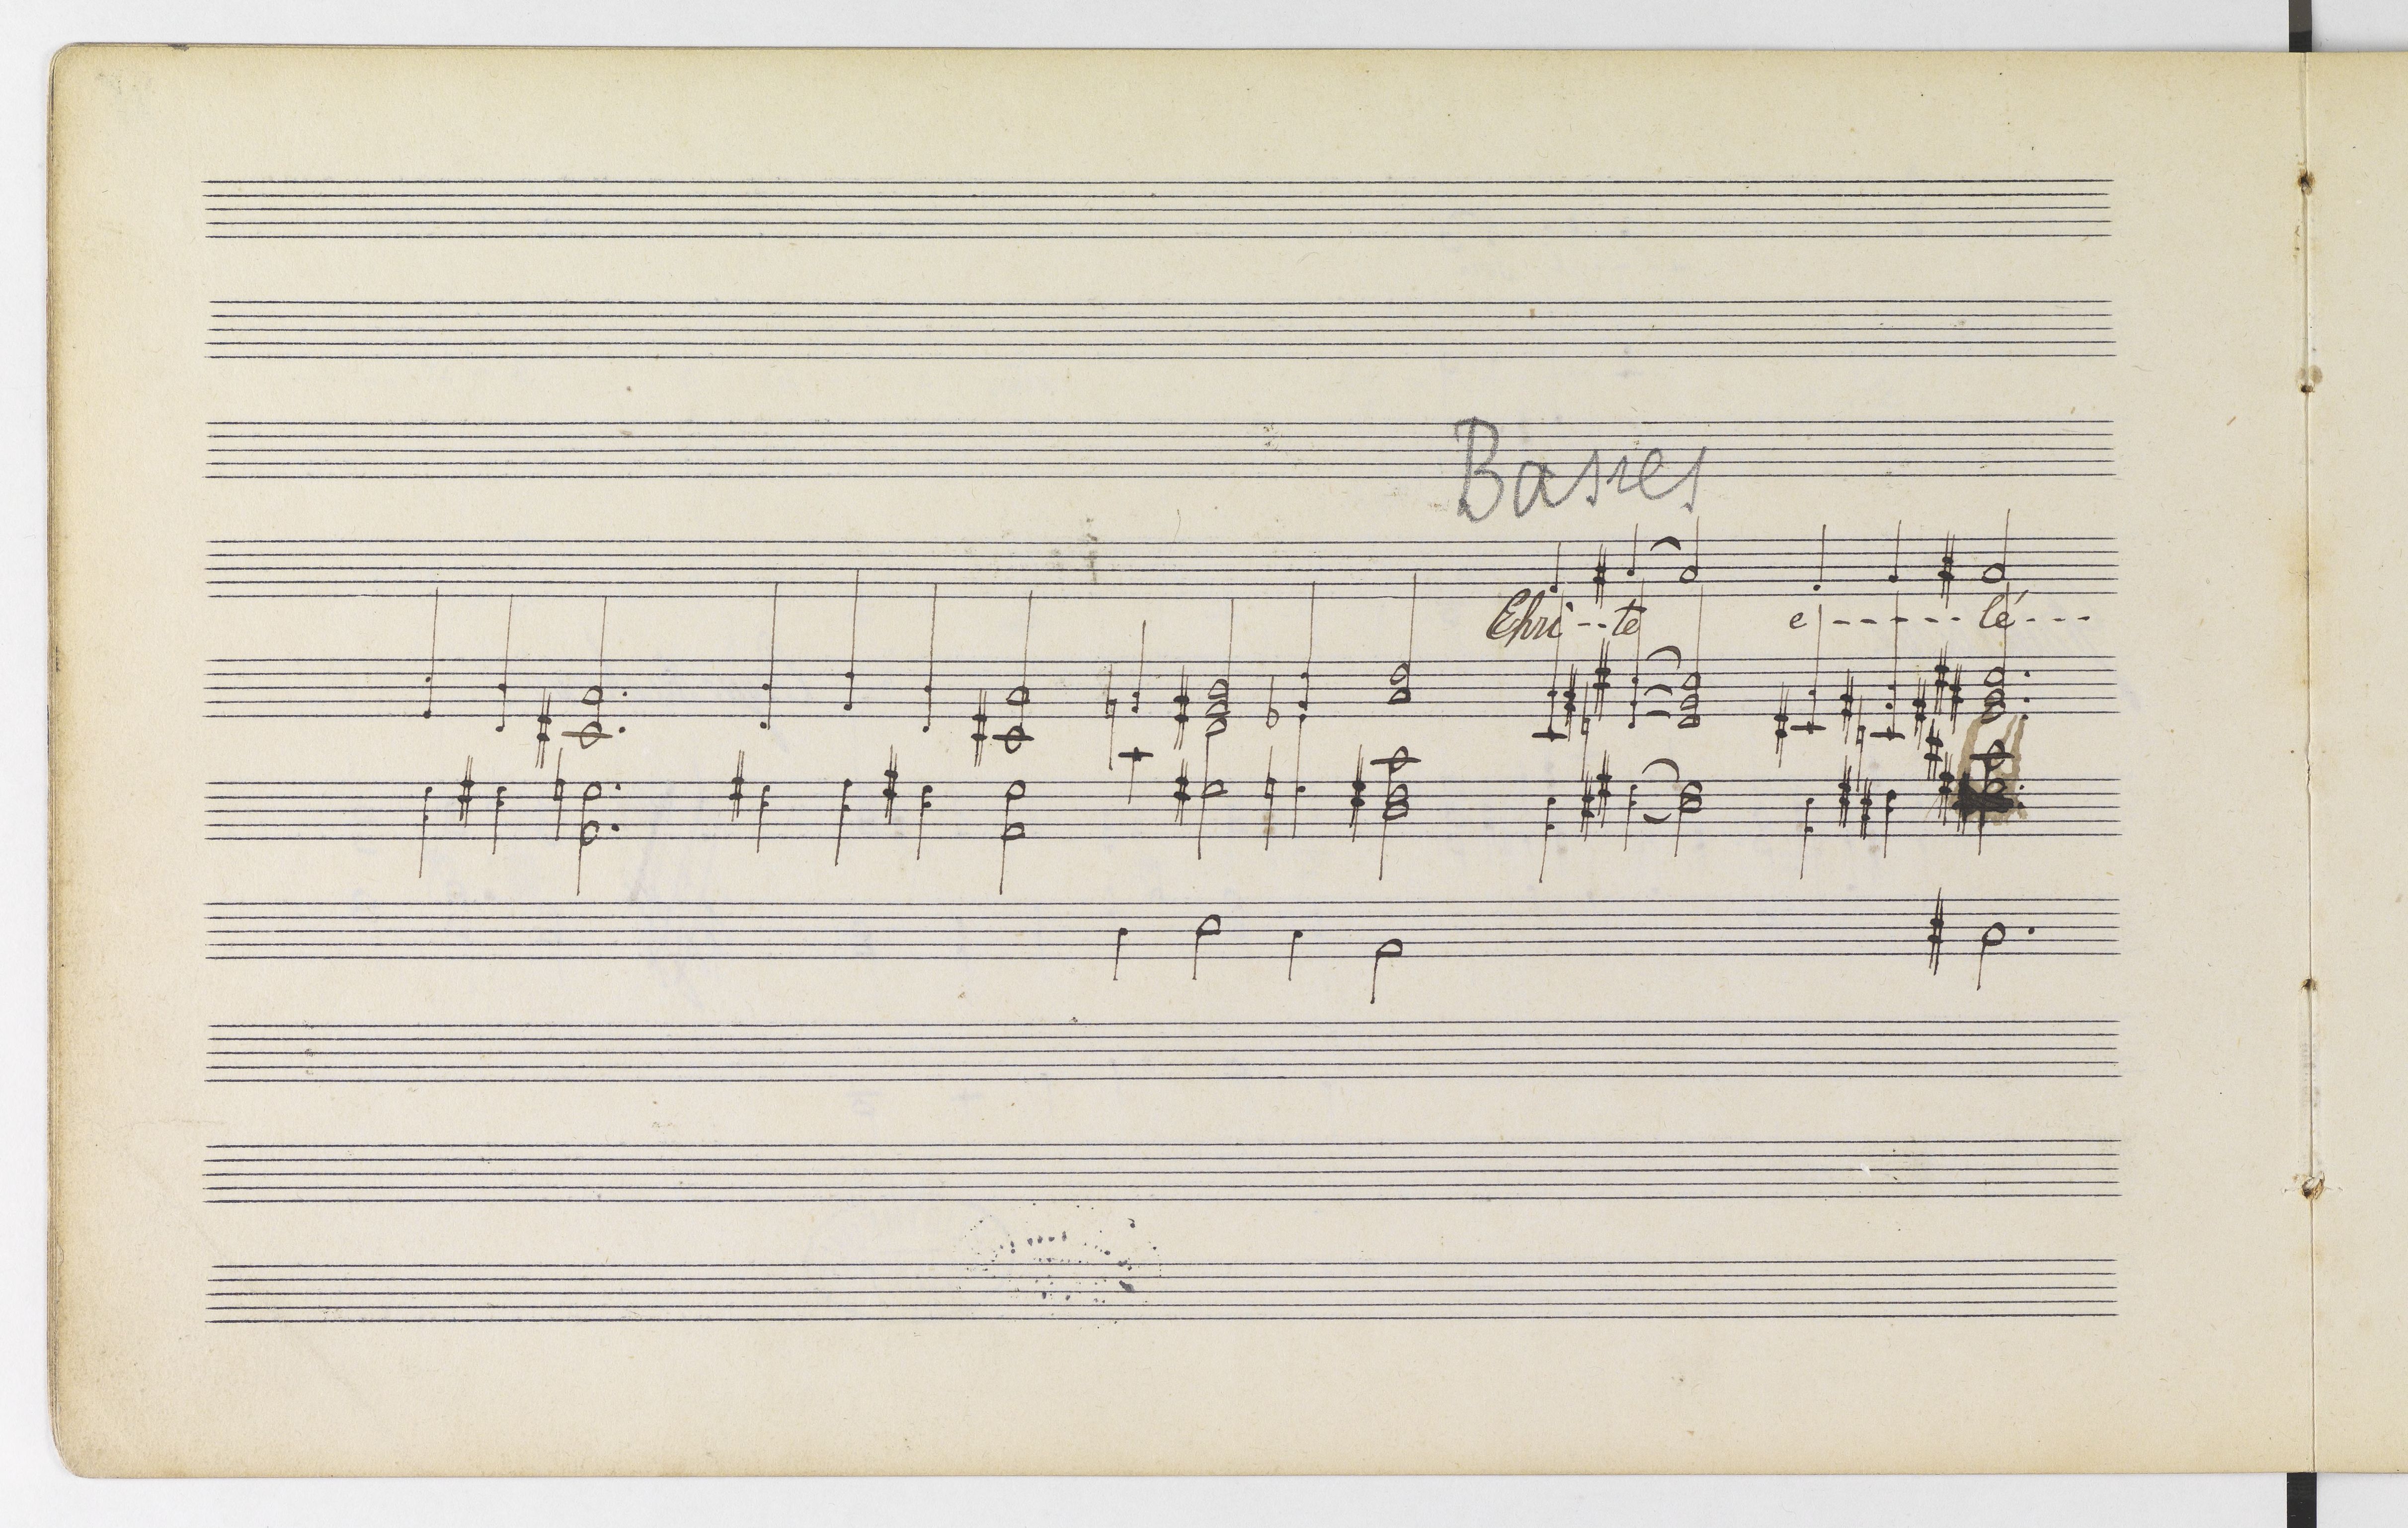 Basses
Chri--te
e------lé---